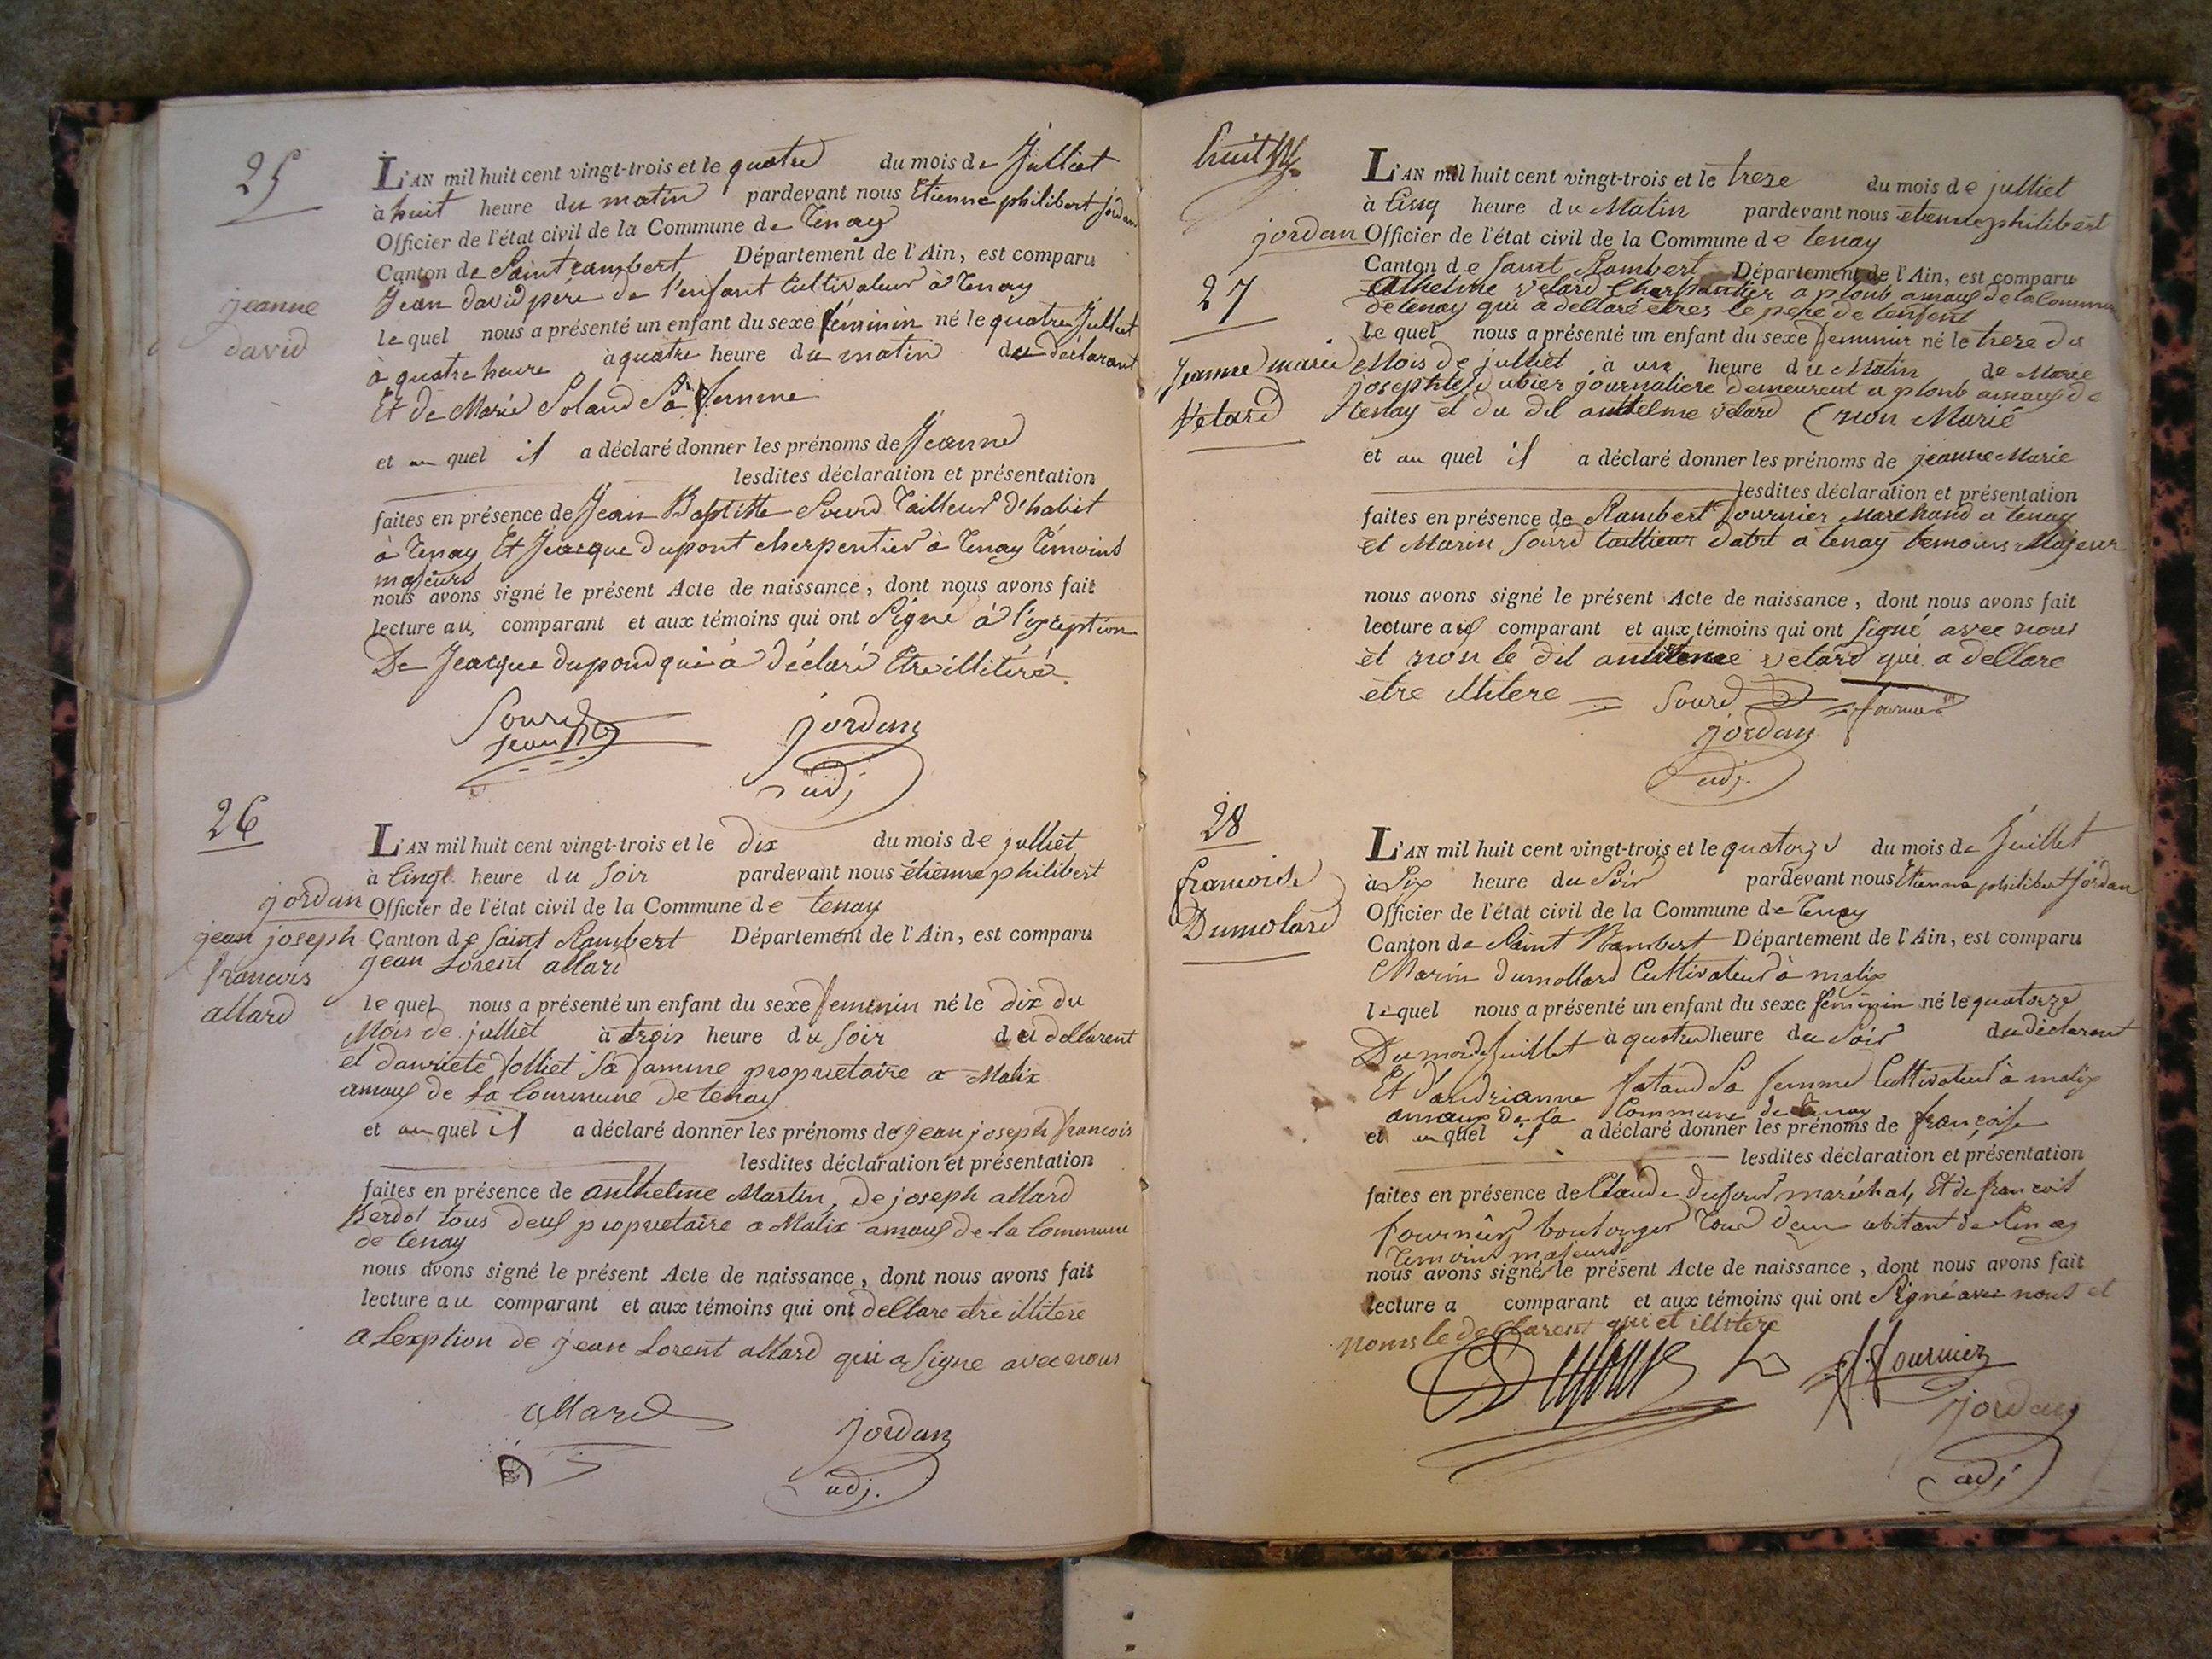 25
jeanne
david
L'AN mil huit cent vingt-trois et le quatre du mois de Julliet
à huit heure du matin pardevant nous Etienne philibert jordan
Officier de l'état civil de la Commune de Tenay
Canton de Saint rambert Département de l'Ain, est comparu
Jean david père de l'enfant Cultivateur à Tenay
le quel nous a présenté un enfant du sexe féminin né le quatre Julliet
à quatre heure à quatre heure du matin du déclarant
Et de Marie Soland Sa femme
et au quel il a déclaré donner les prénoms de Jeanne
lesdites déclaration et présentation
faites en présence de Jean Baptitte Sourd Tailleur d'habit
à Tenay Et Jeacque dupont cherpentier à Tenay Témoins
majeurs
nous avons signé le présent Acte de naissance, dont nous avons fait
lecture au comparant et aux témoins qui ont Signé à l'exseption
De Jeacque dupond qui à déclaré Etre illitéré
Sourd
jean
jordan
adj
26
jordan
jean joseph
francois
allard
L'AN mil huit cent vingt-trois et le dix du mois de julliet
à Cinq heure du soir pardevant nous étienne philibert
Officier de l'état civil de la Commune de tenay
Canton de Saint Rambert Département de l'Ain, est comparu
jean Lorent allard
le quel nous a présenté un enfant du sexe feminin né le dix du
Mois de julliet à trois heure du soir du dellarent
et danriete folliet Sa famme propriétaire a Malix
amaus de la Commune de tenay
et au quel il a déclaré donner les prénoms de jean joseph francois
lesdites déclaration et présentation
faites en présence de anthelme Martin, de joseph allard
Berdot tous deus propriétaire a Malix amaus de la Commune
de tenay
nous avons signé le présent Acte de naissance, dont nous avons fait
lecture au comparant et aux témoins qui ont dellare etre illitere
a Lexption de jean Lorent allard qui a signe avec nous
allard
jordan
adj.
huit
jordan
27
Jeanne marie
Velard
L'AN mil huit cent vingt-trois et le treze du mois de julliet
à Cinq heure du Matin pardevant nous etienne philibert
Officier de l'état civil de la Commune de tenay
Canton de saint Rambert Département de l'Ain, est comparu
Athelme velard Charpantier a plomb amaus de la Commune
de tenay qui a dellaré etres le pere de lenfent
le quel nous a présenté un enfant du sexe feminin né le treze du
Mois de julliet à une heure du Matin de Marie
josephte dubier journaliere demeurent a plomb amaus de
tenay et du dit anthelme velard (non Marié
et au quel il a déclaré donner les prénoms de jeanne Marie
lesdites déclaration et présentation
faites en présence de Rambert fournier Marchand a tenay
et Marin Sourd taillieur dabit a tenay temoins Majeur
nous avons signé le présent Acte de naissance, dont nous avons fait
lecture au comparant et aux témoins qui ont signé avec nous
et non le dit velard qui a dellare
etre illitere Sourd fournier
jordan
adj.
28
francoise
Dumolard
L'AN mil huit cent vingt-trois et le quatorze du mois de Juillet
à Six heure du Soir pardevant nous Etienne philibert Jordan
Officier de l'état civil de la Commune de Tenay
Canton de Saint Rambert Département de l'Ain, est comparu
Marin dumollard Cultivateur à malix
le quel nous a présenté un enfant du sexe féminin né le quatorze
Du mois de Juillet à quatre heure du Soir du déclarant
Et d'andrianne Sa femme Cultivateur à malix
amaux De la Commune de tenay
et au quel il a déclaré donner les prénoms de françoise
lesdites déclaration et présentation
faites en présence de Claude dufour maréchal, Et de françois
fournier boulonger Tous deux abitant de Tenay
Temoins majeurs
nous avons signé le présent Acte de naissance, dont nous avons fait
lecture a comparant et aux témoins qui ont Signé avec nous et
le declarent qui et illitere
Dufour
fournier
jordan
adj